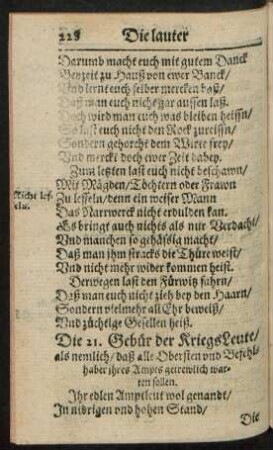 228 Die lauter
Darumb macht euch mit gutem Danck
Beyzeit zu Hauß von ewer Banck/
Vnd lernt euch selber mercken baß/
Daß man euch nicht gar aussen laß.
Doch wird man euch was bleiben heissn/
So laßt euch nicht den Rock zureissn/
Sondern gehorcht dem Wirte frey/
Vnd merckt doch ewer Zeit dabey.
Zum letzten last euch nicht beschawn/
Mit Mägden/ Töchtern oder Frawn
Nicht lef-
feln.
Zu leffeln/ denn ein weiser Mann
Das Narrwerck nicht erdulden kan.
Es bringt auch nichts als nur Verdacht/
Vnd manchen so gehässig macht/
Daß man jhm stracks die Thüre weist/
Vnd nicht mehr wider kommen heist.
Derwegen last den Fürwitz fahrn/
Daß man euch nicht zieh bey den Haarn/
Sondern vielmehr all Ehr beweiß/
Vnd züchtige Gesellen heiß.
Die 21. Gebür der KriegsLeute/
als nemlich/ daß alle Obersten vnd Befehl-
haber jhres Amptes getrewlich war-
ten sollen.
Ihr edlen Amptleut wol genandt/
In nidrigen vnd hohen Stand/
Die